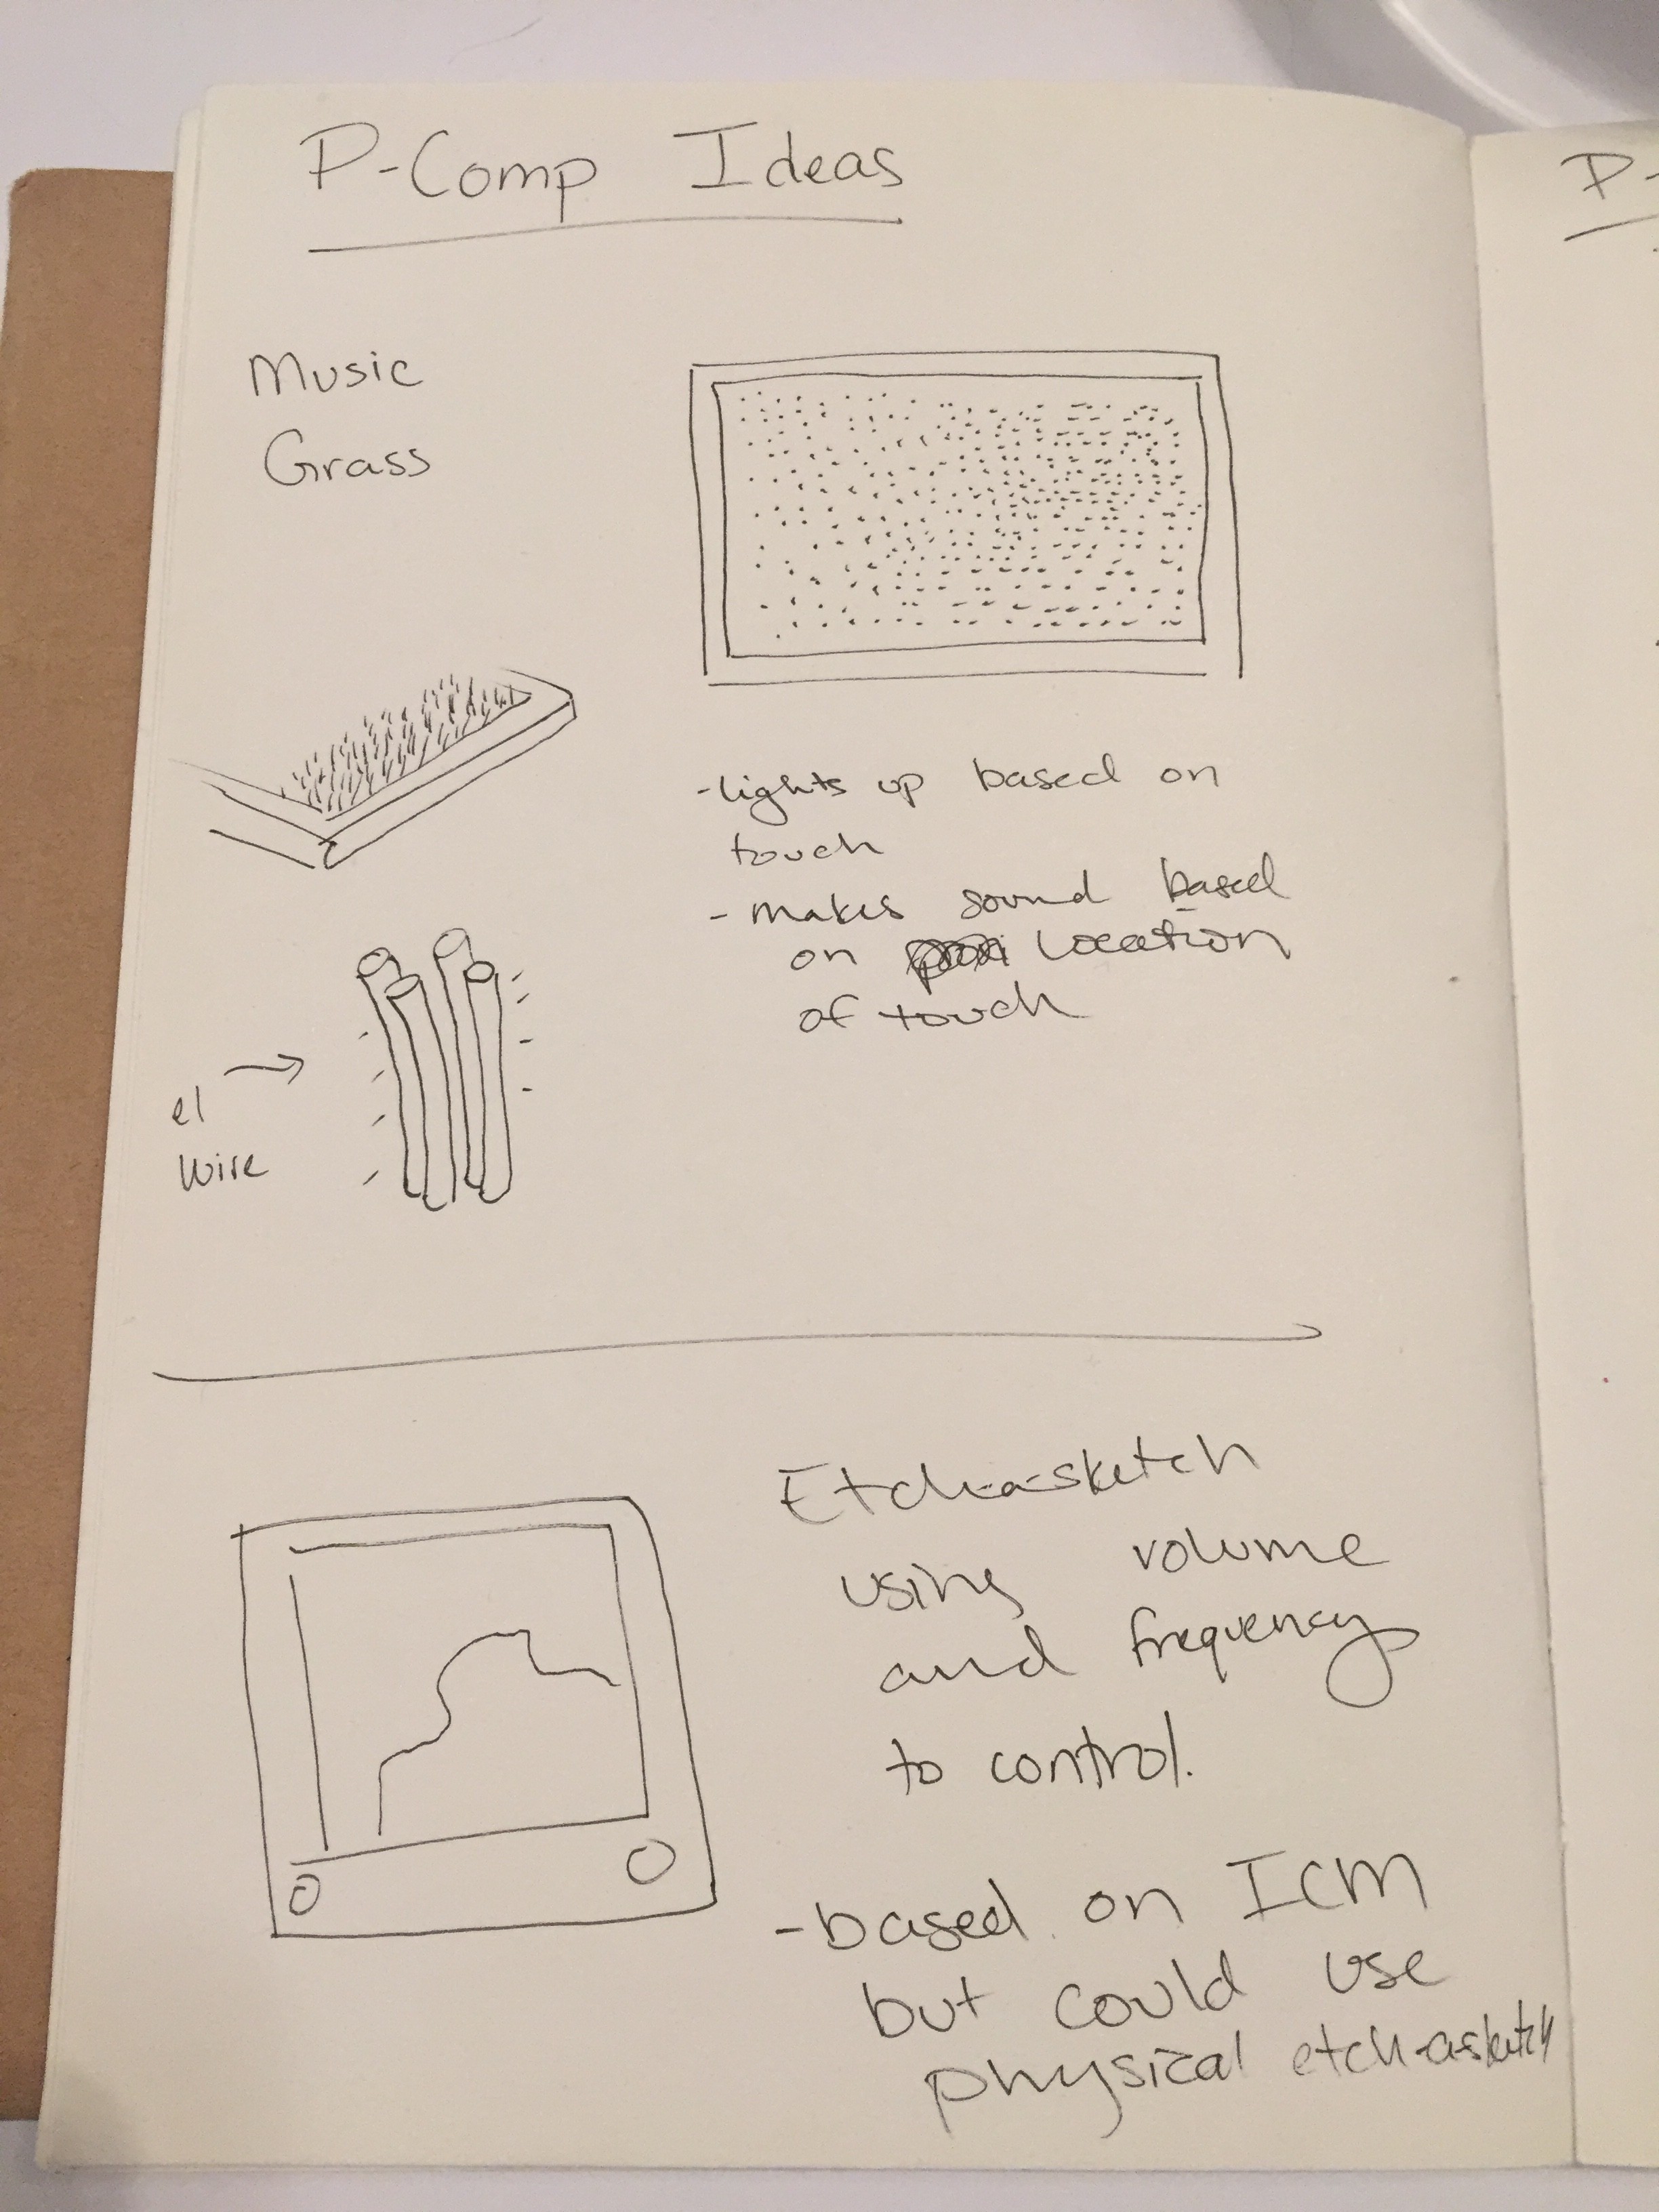 P-Comp Ideas
P-
Music
Grass
-lights up based on
touch
- makes sound based
on location
of touch
el
wire
Etch-a-sketch
using volume
and frequency
to control.
-based on ICM
but could use
physical etch-a-sketch